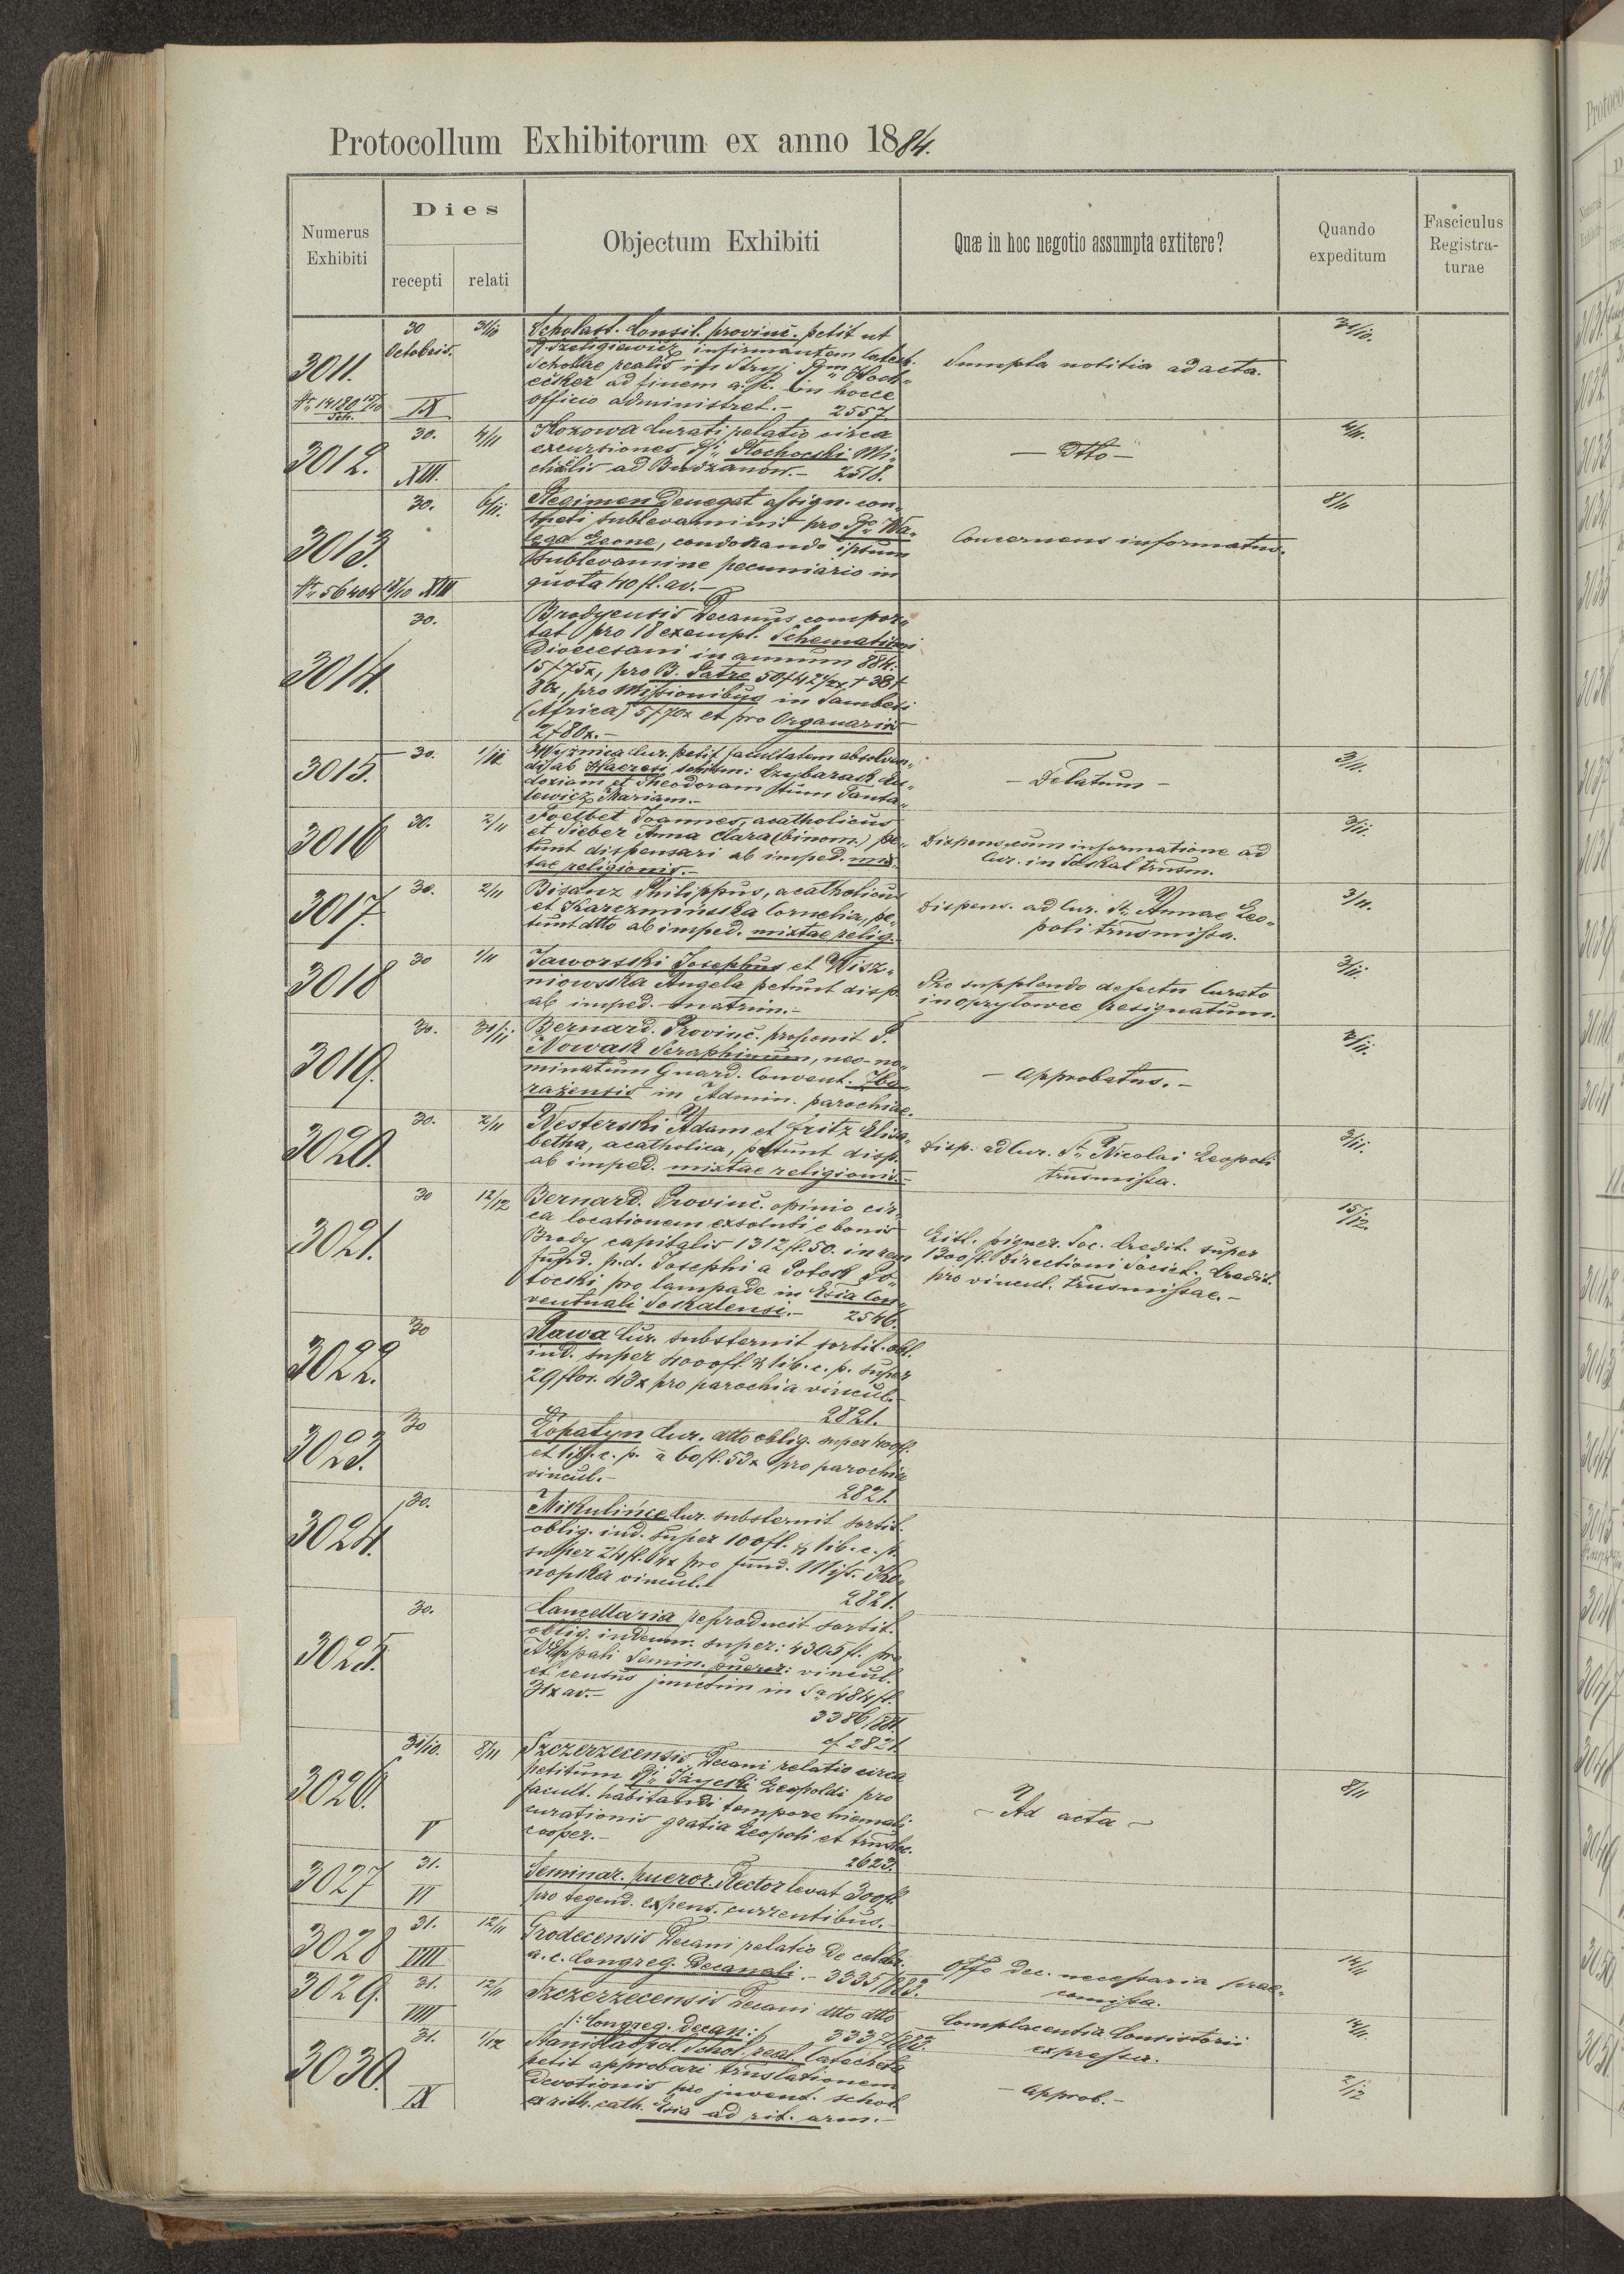 Protocollum Exhibitorum ex anno 1884.
Numerus Exhibiti
Dies
recepti
relati
Objectum Exhibiti
Quæ in hoc negotio assumpta extitere?
Quando expeditum
Fasciculus Registra-
turae
3011.
30 Octobris.
31/10
Scholast. Consil. provinc. petit ut
infirmantem Catech.
Scholae realis in Stryj
ad finem a. sc. in hocce
officio administret.- 2557
Sumpta notitia ad acta.
31/10.
Nr. 14180 15/10
Sch.
IX
3012.
30.
XIII.
4/11
Kozowa Curati relatio circa
excursiones
chaëlis ad Budzanów.- 2518.
- Dtto -
4/11.
3013.
30.
6/11.
Regimen denegat assign. con-
sueti sublevaminis pro
Leone, condonando ipsum
sublevamine pecuniario in
quota 40 fl. av.-
Concernens informatus.
8/11
Nr. 56404 18/10 XIII
3014.
30.
Brodyensis Decanus compor-
tat pro 18 exempl. Schematismi
Dioecesani in annum 884:
15 f 75x, pro B. Patre 50f 42 1/2x + 38f
80x, pro Missionibus in Sambesi
(Africa) 5 f 70x et pro Organariis
2f 80x.-
3015.
30.
Wyżnica Cur. petit facultatem absolven-
di ab Haeresi
doxiam et Theodoram tum Panta-
lewicz Mariam.-
- Delatum -
3/11.
3016
30.
2/11
Joannes, acatholicus
et Sieber Anna Clara (binom.) pe-
tunt dispensari ab imped. mix-
tae religionis.-
Dispens. cum informatione ad
Cur. in trusm.
3/11.
3017.
30.
2/11
Bisanz Philippus, acatholicus
et Karczmińska Cornelia, pe-
tunt dtto ab imped. mixtae relig.
Dispens. ad Cur. St. Annae Leo-
poli trusmissa.
3/11.
3018
30
1/11
Jaworski Josephus et Wisz-
niowska Angela petunt disp.
ab imped. matrim.-
Pro supplendo defectu Curato
in Oprytowce resignatum.
3/11.
3019.
30.
Bernard. Provinc. proponit P.
Nowak Seraphinum, neo-no-
minatum Guard. Convent. Zba-
rażensis in Admin. parochiae.
- Approbatus. -
3020.
30.
2/11
Nesterski Adam et Fritz Elisa-
betha, acatholica, petunt disp.
ab imped. mixtae religionis.-
Disp. ad Cur. St. Nicolai Leopoli
trusmissa.
3/11.
3021.
30
12/12
Bernard. Provinc. opinio cir-
ca locationem exsoluti e bonis
Brody capitalis 1312 fl. 50. in rem
fund. p.d. Josephi a Potok Po-
tocki pro lampade in Ecsia Con-
ventuali Sokalensi.- 2546.
Litt. pigner. Soc. Credit. super
1300 fl. Directioni Societ. Credit.
pro vincul. trusmissae.-
15/12.
3022.
30
Rawa Cur. substernit sortit. obl.
ind. super 4000fl. & lib. c. p. super
29 flor. 43x pro parochia vincul.-
2821.
3023.
30
Łopatyn Cur. dtto oblig. super 400fl.
et lib. c. p. à 60 fl. 53x pro parochia
vincul.-
2821.
3024.
30.
Mikulińce Cur. substernit sortit.
oblig. ind. super 100fl. & lib. c. p.
super 24 fl. 64x pro fund. Miss. Ko-
nopka vincul.-
2821.
3025.
30.
Cancellaria reproducit sortit.
oblig. indemn. super: 4305 fl. pro
Semin. pueror: vincul.
et census junctim in Sa 484 fl.
31x av.-
3386/881.
cf 2821.
3026.
30/10.
V
8/11
Szczerzecensis Decani relatio circa
petitum Leopoldi pro
facult. habitandi tempore hiemali
curationis gratia Leopoli et
cooper.-
2623.
- Ad acta -
8/11
3027
31.
VI
Seminar. pueror. Rector levat 300fl.
pro tegend. expens. currentibus.-
3028
31.
VIII
12/11
Grodecensis Decani relatio de celebr.
a. c. Congreg. Decanali.- 3335/883.
Offo Dec. necessaria prae-
comissa.
14/11
3029.
31.
VIII
12/11
Szczerzecensis Decani dtto dtto
/: Congreg. Decan:/ 3337/883.
Complacentia Consistorii
expressa.
14/11.
3030.
31.
IX
1/12
Stanislaopol. Schol. real. Catecheta
petit approbari translationem
devotionis pro juvent. schol.
ex rith. cath. Ecsia ad rit. arm.-
- Approb.-
2/12